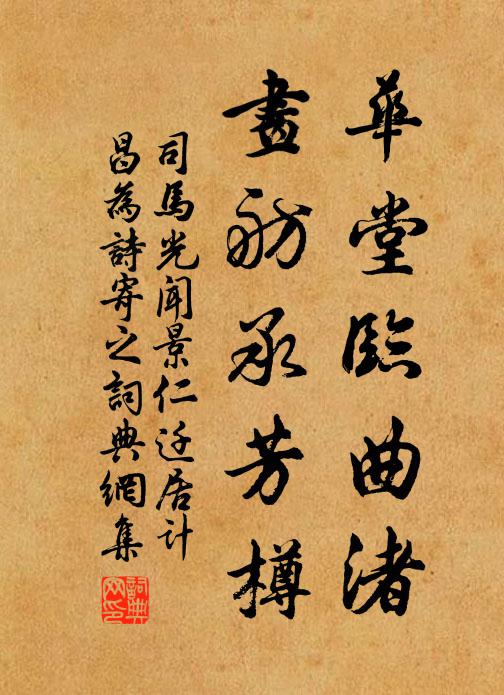 華堂臨曲渚
畫舫承芳樽
司馬光聞景仁迁居計
昌為詩寄之詞典網集
詞典網印